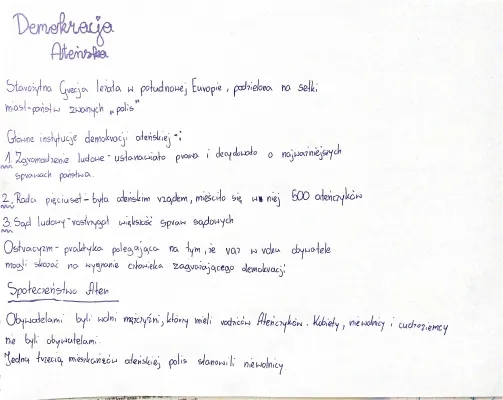 Demokracja
Ateńska
Starożytna Grecja leżała w południowej Europie, podzielona na setki
miast-państw zwanych „polis"
Główne instytucje demokracji ateńskiej -:
1. Zgromadzenie ludowe - ustanawiało prawa i decydowało o najważniejszych
sprawach państwa.
2. Rada pięciuset - była ateńskim rządem, mieściło się w niej 500 ateńczyków
3. Sąd ludowy - rostrzygał większość spraw sądowych
Ostracyzm - praktyka polegająca na tym, że raz w roku obywatele
mogli skazać na wygnanie człowieka zagrażającego demokracji
Społeczeństwo Aten
Obywatelami byli wolni mężczyźni, którzy mieli rodziców Ateńczyków. Kobiety, niewolnicy i cudzoziemcy
nie byli obywatelami.
Jedną trzecią mieszkańców ateńskiej polis stanowili niewolnicy